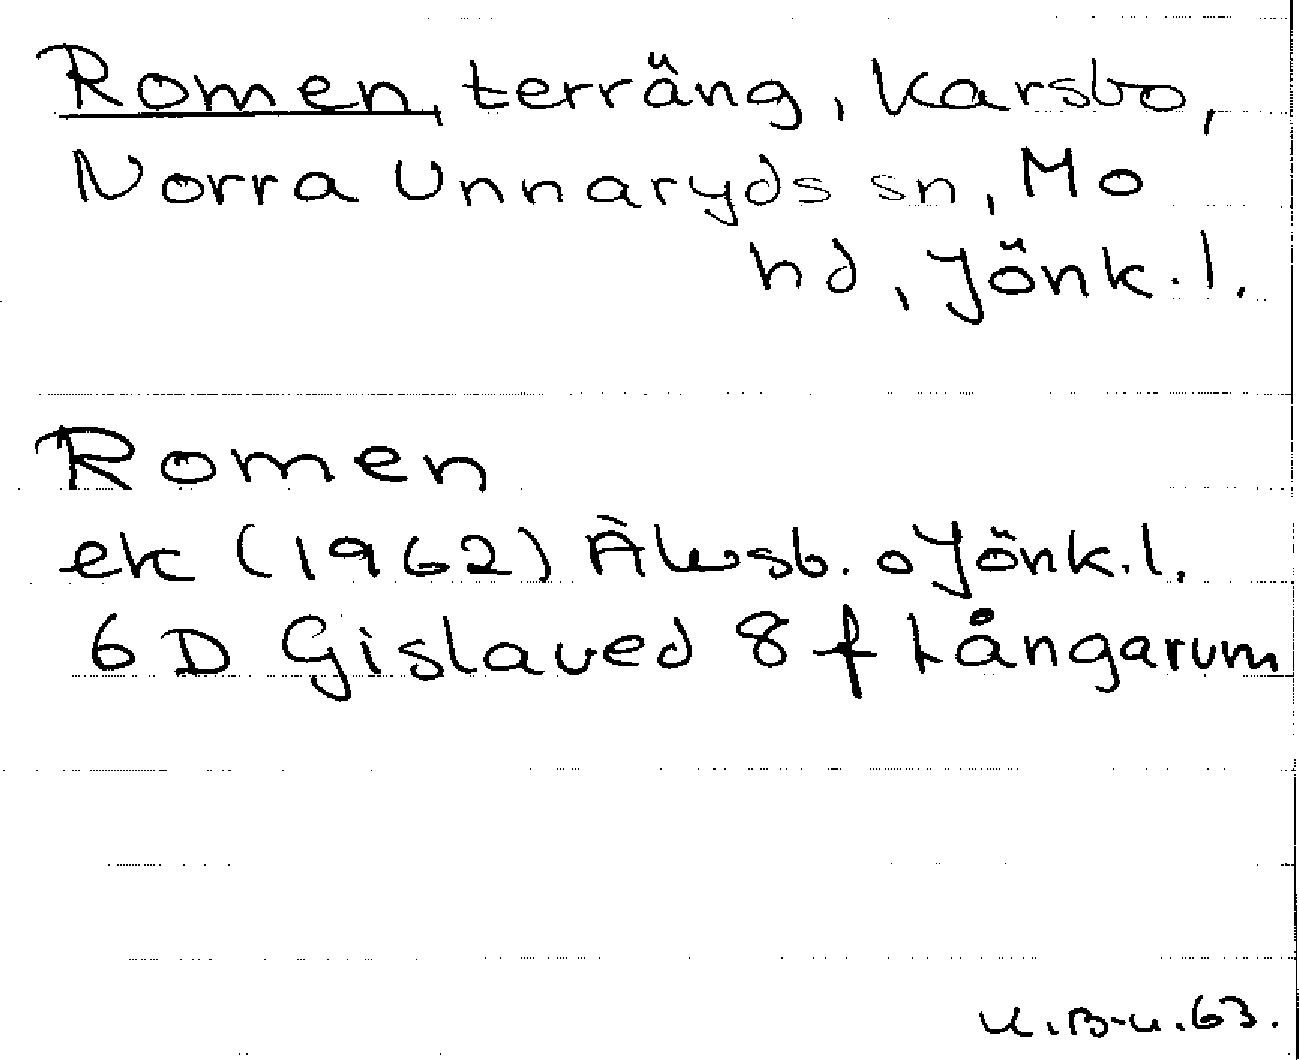 Romen, terräng, Karsbo,
Norra Unnaryds sn, Mo
hd, Jönk.l.
Romen
ek (1962) Älvsb. o Jönk.l.
6 D Gislaved 8 f Långarum
K.B-n.63.